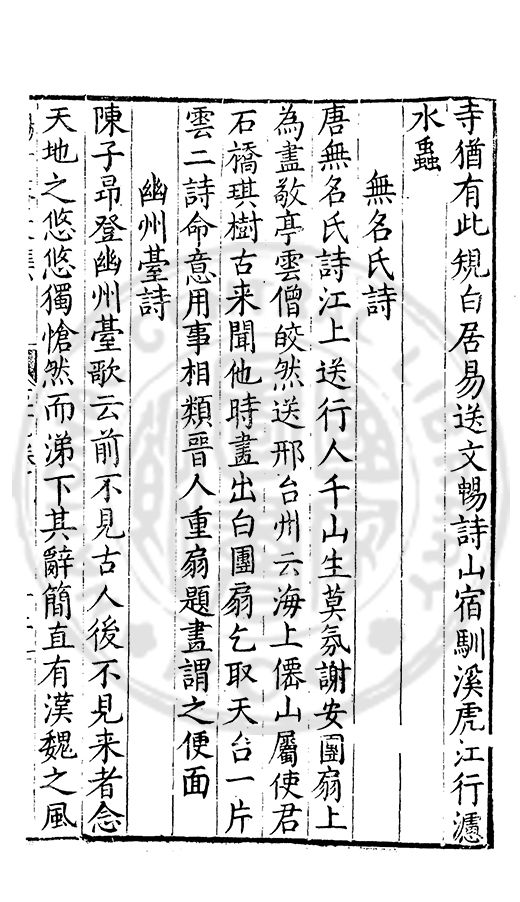 寺猶有此規白居易送文暢詩山宿馴溪虎江行濾
水蟲
無名氏詩
唐無名氏詩江上送行人千山生莫氛謝安團扇上
為畫敬亭雲僧皎然送邢台州云海上僊山屬使君
石橋琪樹古来聞他時畫出白團扇乞取天台一片
雲二詩命意用事相類晉人重扇題畫謂之便面
幽州臺詩
陳子昂登幽州臺歌云前不見古人後不見来者念
天地之悠悠獨愴然而涕下其辭簡直有漢魏之風